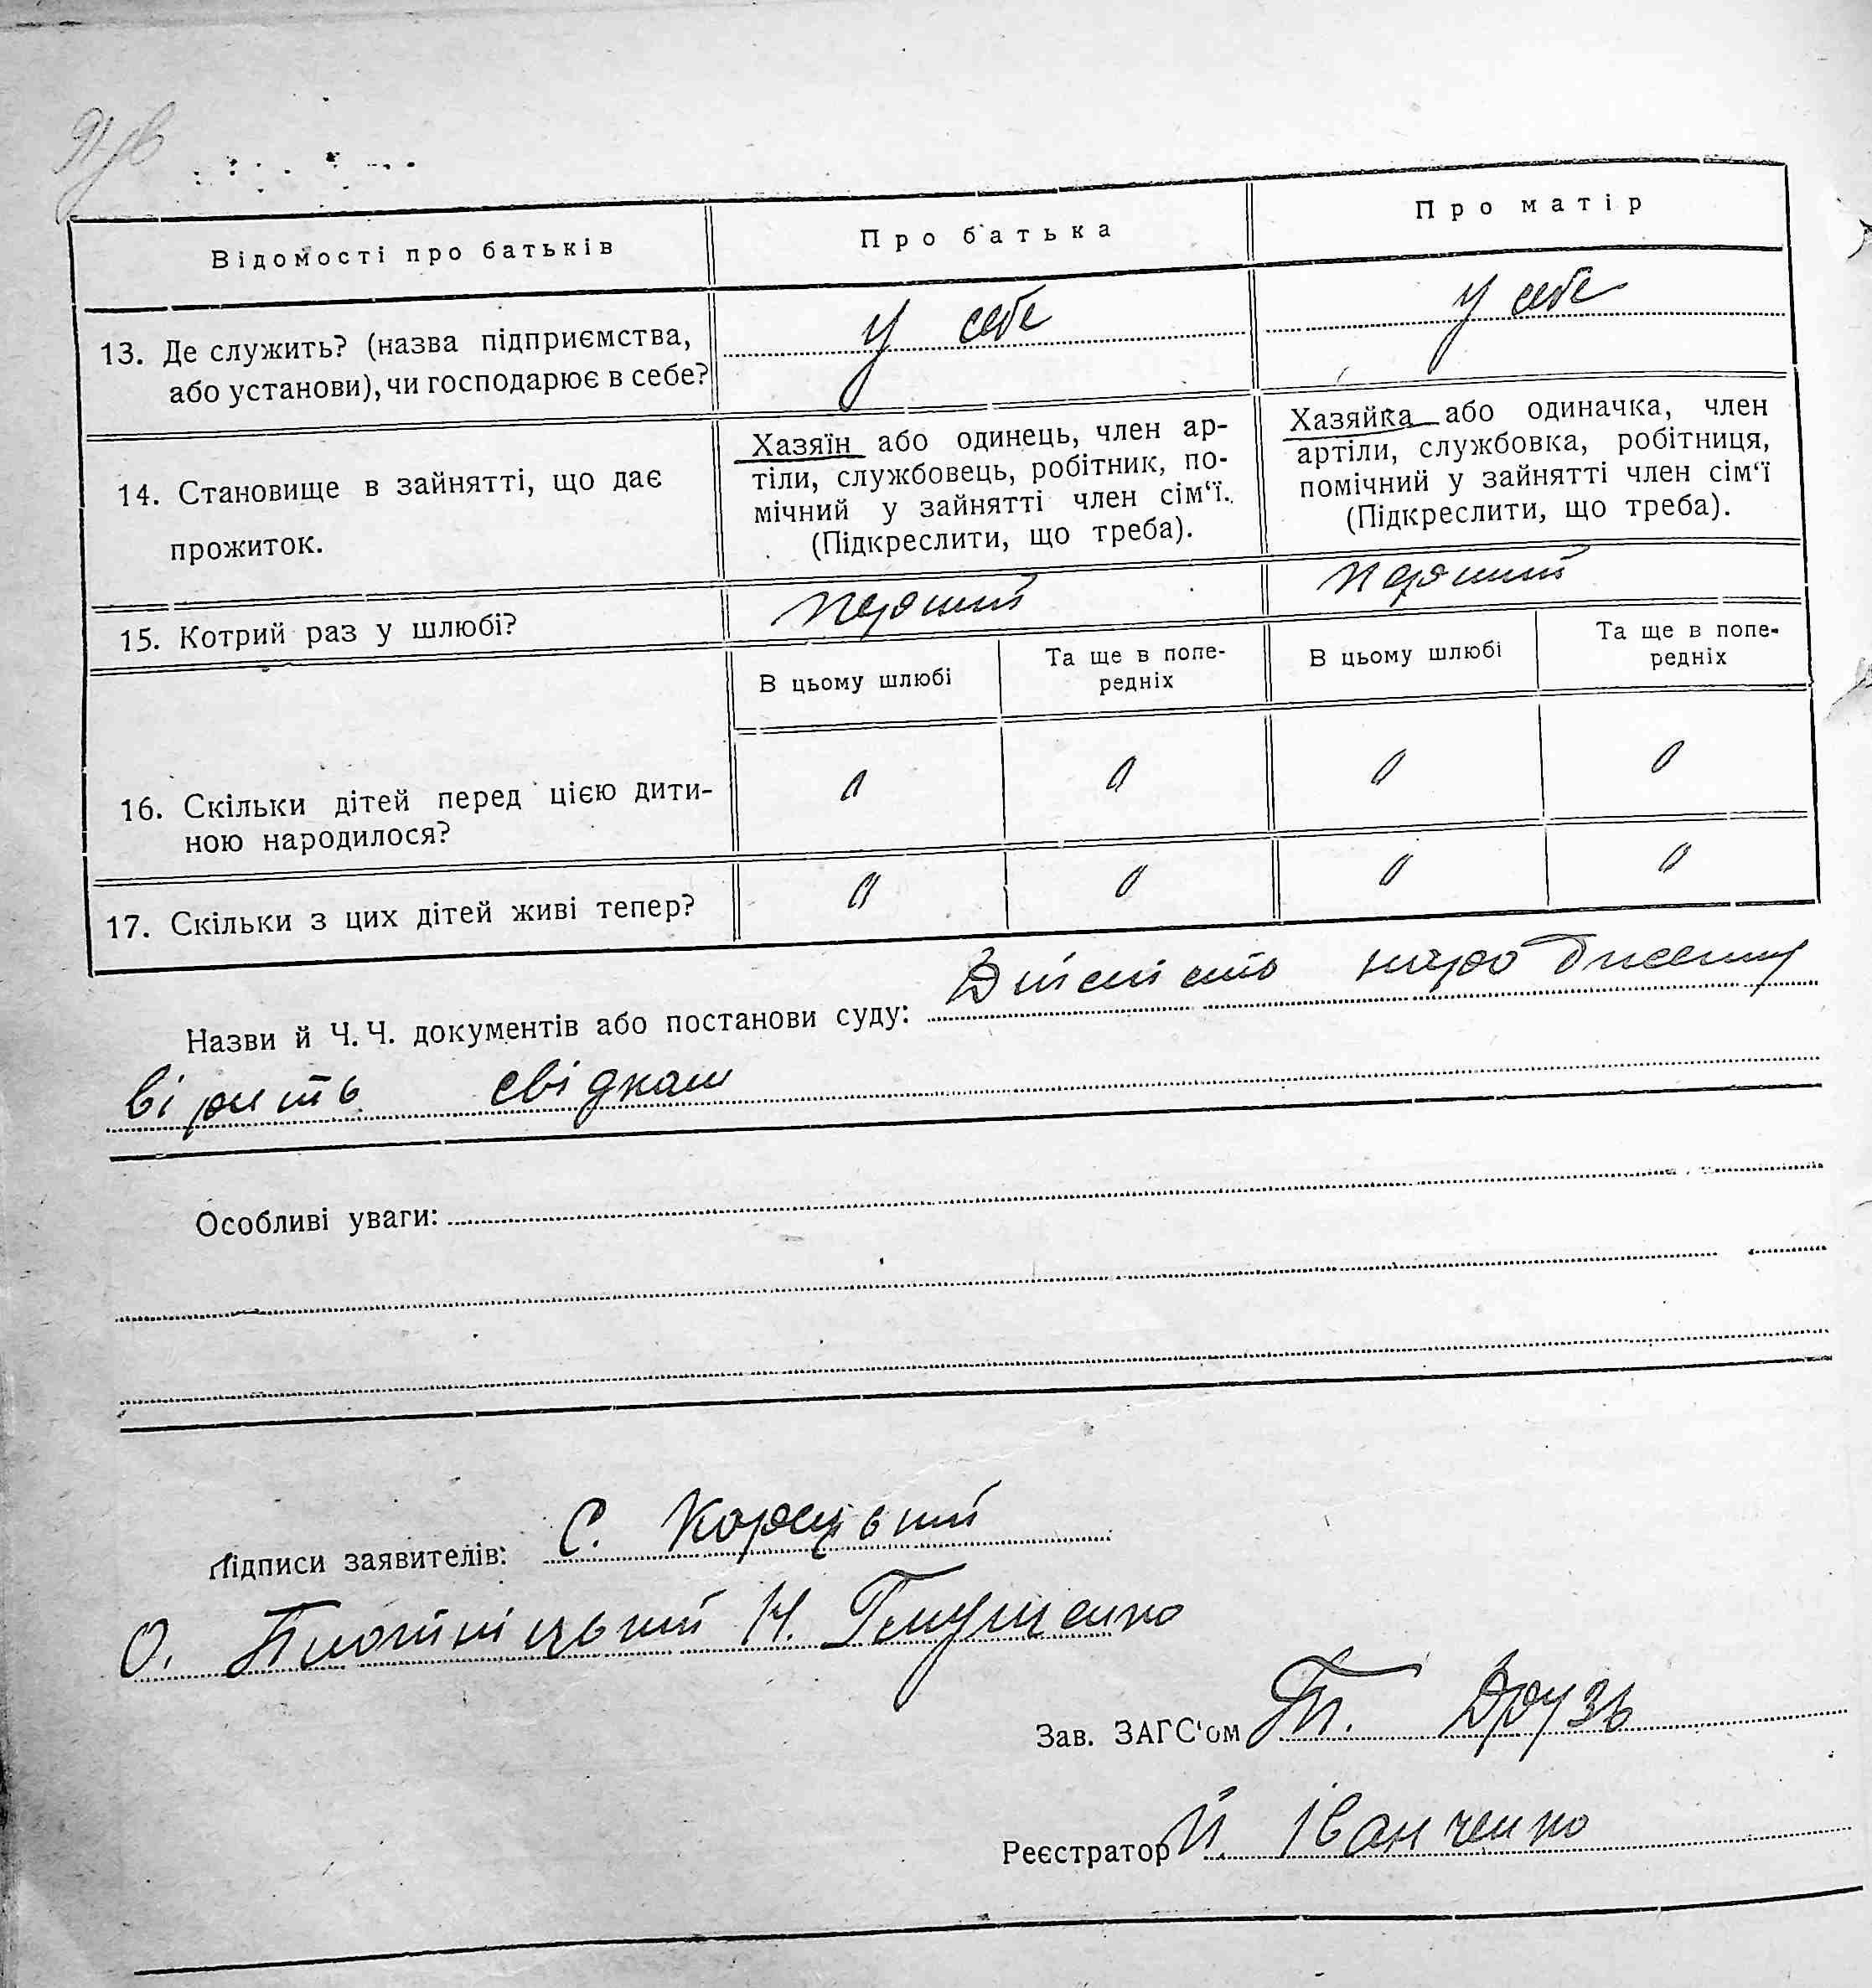 Відомості про батьків
Про батька
Про матір
13. Де служить? (назва підприємства,
або установи), чи господарює в себе?
у себе
у себе
14. Становище в зайнятті, що дає
прожиток.
Хазяїн або одинець, член ар-
тіли, службовець, робітник, по-
мічний у зайнятті член сім‘ї.
(Підкреслити, що треба).
Хазяйка або одиначка, член
артіли, службовка, робітниця,
помічний у зайнятті член сім‘ї
(Підкреслити, що треба).
15. Котрий раз у шлюбі?
перший
перший
В цьому шлюбі
Та ще в попе-
редніх
В цьому шлюбі
Та ще в попе-
редніх
16. Скільки дітей перед цією дити-
ною народилося?
0 0 0 0
17. Скільки з цих дітей живі тепер?
0 0 0 0
Назви й Ч.Ч. документів або постанови суду: Дійсність
свідкам
Особливі уваги:
Підписи заявителів: С. Корецький
О. Плотніцький Н. Глущенко
Зав. ЗАГС‘ом П. Друзь
Реєстратор Й. Іванченко